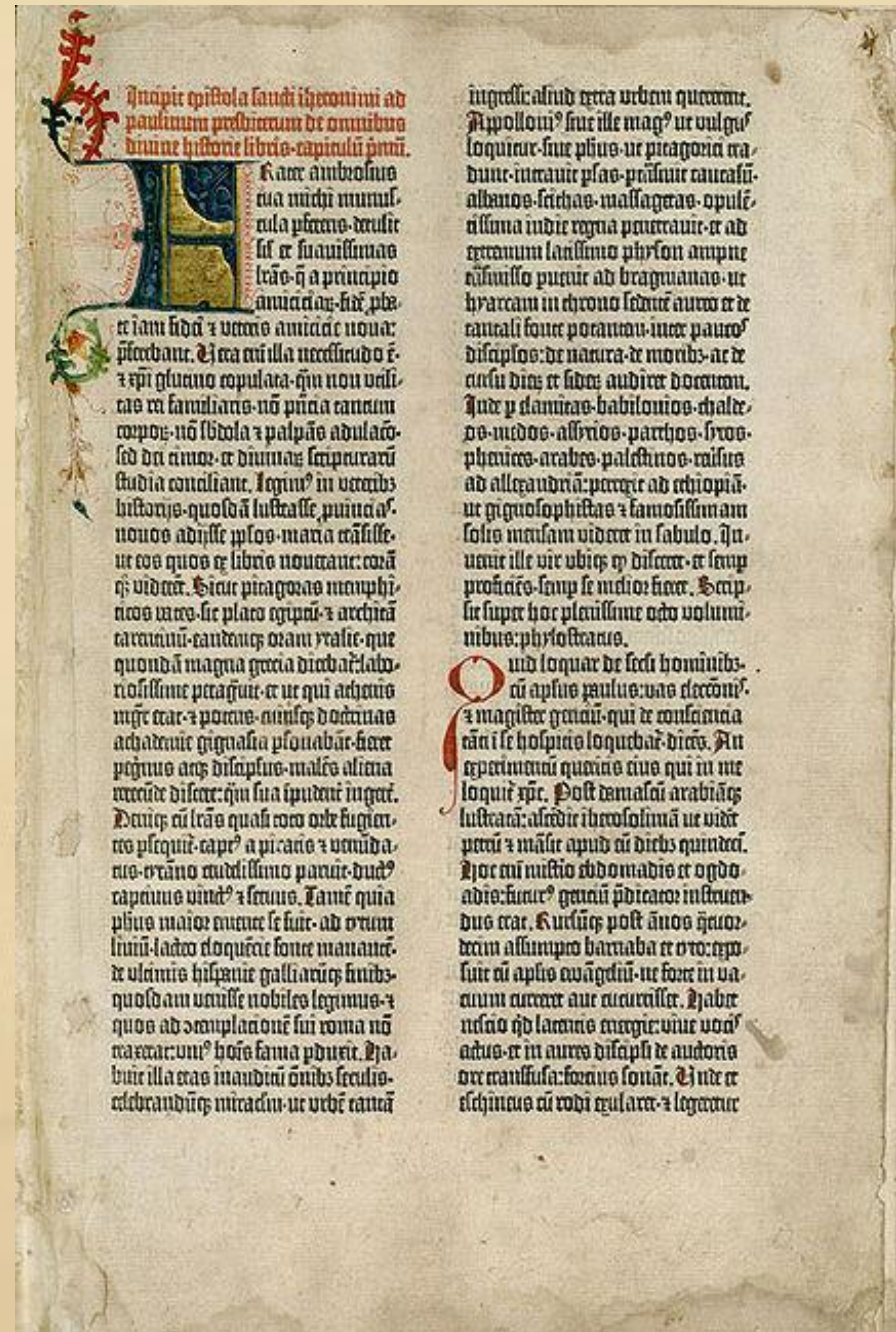 Incipit epistola sancti iheronimi ad
paulinum presbiterum de omnibus
divine historie libris·capitulū p̄mū.
Frater ambrosius
tua michi munus-
cula pferens·detulit
sil̄ et suavissimas
lrās·q̄ a principio
amiciciaꝝ·fidē pba-
te iam fidei ⁊ veteris amicicie noua:
p̄ferebant. Uera eni illa necessitudo ē·
⁊ xp̄i glutino copulata·q̄m non utili-
tas rei familiaris·nō pn̄cia tantum
corpoꝝ·nō sb̄dola ⁊ palpās adulacō·
sed dei timor·et divinaꝝ scripturarū
studia conciliant. Legimꝰ in veteribꝫ
historijs·quosdā lustrasse ꝓuinciaſ·
nouos adijsse pp̄los·maria trāsisse·
ut eos quos ex libris nouerant: corā
qꝫ viderēt. Sicut pitagoras memphi-
ticos vates·sic plato egiptū·⁊ architā
tarentinū·eandemqꝫ oram ytalie·que
quondā magna grecia dicebat̄: labo-
riosissime peragͥuit·et ut qui athenis
mgr̄ erat·⁊ potens·cuiusqꝫ doctrinas
achademie gignasia psonabāt·fieret
pegͥnus atqꝫ discipłus·malēs aliena
verecūde discere: q̄m sua īpudent̄ ingerē.
Deniqꝫ cū lrās quasi toto orbe fugien-
tes psequit̄·captꝰ a piratis ⁊ venūda-
tus·tyrāno crudelissimo paruit·ductꝰ
captiuus vinctꝰ ⁊ seruus. Tamē quia
phūs maior emente se fuit·ad tytum
liuiū·lacteo eloquēcie fonte manantē·
de ultimis hispanie galliarūqꝫ finibꝫ·
quosdam venisse nobiles legimus·⁊
quos ad ↄtemplacionē sui roma nō
traxerat: uniꝰ hoīs fama pduxit. Ha-
buit illa etas inauditū ōnibꝫ seculis·
celebrandūqꝫ miraclm·ut urbē tantā
ingressi: aliud extra urbem quererent.
Appolloniꝰ siue ille magꝰ ut vulguſ
loquitur·siue phūs·ut pitagorici tra-
dunt·intrauit psas·ptrāsiuit caucasū·
albanos·scithas·massagetas·opulē-
tissima indie regna penetrauit·et ad
extremum latissimo physon ampne
trāsmisso puenit ad bragmanas·ut
hyarcam in throno sedentē aureo et de
tantali fonte potantem·inter paucoſ
discipłos: de natura·de moribꝫ·ac de
cursu dieꝝ et sideꝝ audiret docentem.
Inde p elamitas·babilonios·chalde-
os·medos·assyrios·parthos·syros·
phenices·arabes·palestinos·reūsus
ad allexandriā: perrexit ad ethiopiā·
ut gignosophistas ⁊ famosissimam
solis mensam videret in sabulo. In-
uenit ille vir ubiqꝫ qđ disceret·et semp
proficiēs·semp se melior fieret. Scrip-
sit super hoc plenissime octo volumi-
nibus: phylostratus.
Quid loquar de sc̄li hominibꝫ·
cū apłus paulus: vas electōniſ·
⁊ magister genciū·qui de consciencia
tāti ī se hospitis loquebat̄·dicēs. An
experimentū queritis eius qui in me
loquit̄ xp̄c. Post damascū arabiāqꝫ
lustratā: ascēdit iherosolimā ut vidēt
petrū ⁊ māsit apud eū diebꝫ quindecī.
Hoc eni misterio ebdomadis et ogdo-
adis: futurꝰ genciū p̄dicator instruen-
dus erat. Rursūqꝫ post ānos q̄tuor-
decim assumpto barnaba et tyto: expo-
suit cū apłis ewāgeliū·ne forte in va-
cuum curreret aut cucurrisset. Habet
nescio qͥd latentis energie: viue vociſ
actus·et in aures discipłi de auctoris
ore transfusa: forcius sonāt. Unde et
eschineus cū rodi exularet·⁊ legeretur